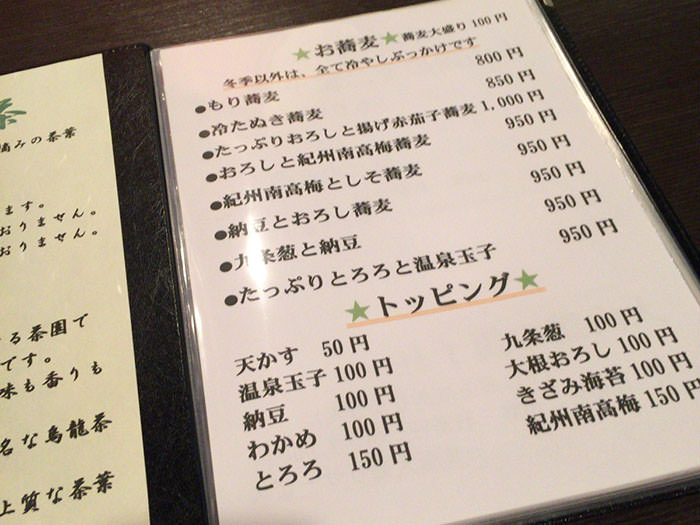 茶
摘みの茶葉
ます。
おりません。
おりません。
る茶園で
です。
味も香りも
名な烏龍茶
上質な茶葉
★お蕎麦★蕎麦大盛り100円
冬季以外は、全て冷やしぶっかけです
●もり蕎麦 800円
●冷たぬき蕎麦 850円
●たっぷりおろしと揚げ赤茄子蕎麦 1,000円
●おろしと紀州南高梅蕎麦 950円
●紀州南高梅としそ蕎麦 950円
●納豆とおろし蕎麦 950円
●九条葱と納豆 950円
●たっぷりとろろと温泉玉子 950円
★トッピング★
天かす 50円
温泉玉子 100円
納豆 100円
わかめ 100円
とろろ 150円
九条葱 100円
大根おろし 100円
きざみ海苔 100円
紀州南高梅 150円